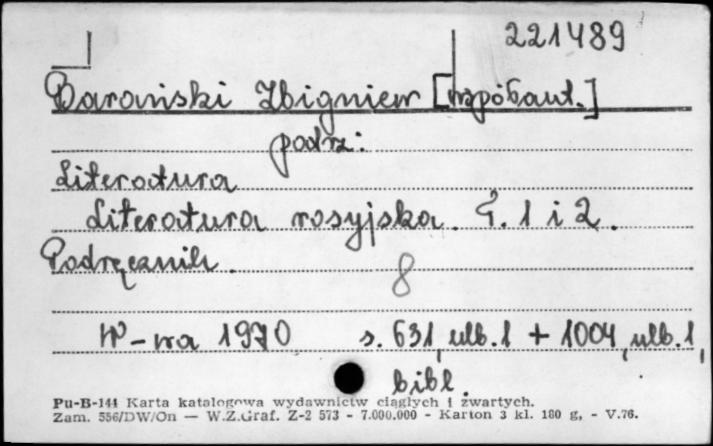 221489
Barański Zbigniew [współaut.]
podrz:
Literatura
Literatura rosyjska. T. 1 i 2.
Podręcznik.
8
W-wa 1970 s. 631, nlb. 1 + 1004, nlb. 1,
bibl.
Pu-B-144 Karta katalogowa wydawnictw ciągłych i zwartych.
Zam. 556/DW/On — W.Z.Graf. Z-2 573 - 7.000.000 - Karton 3 kl. 180 g, - V.76.